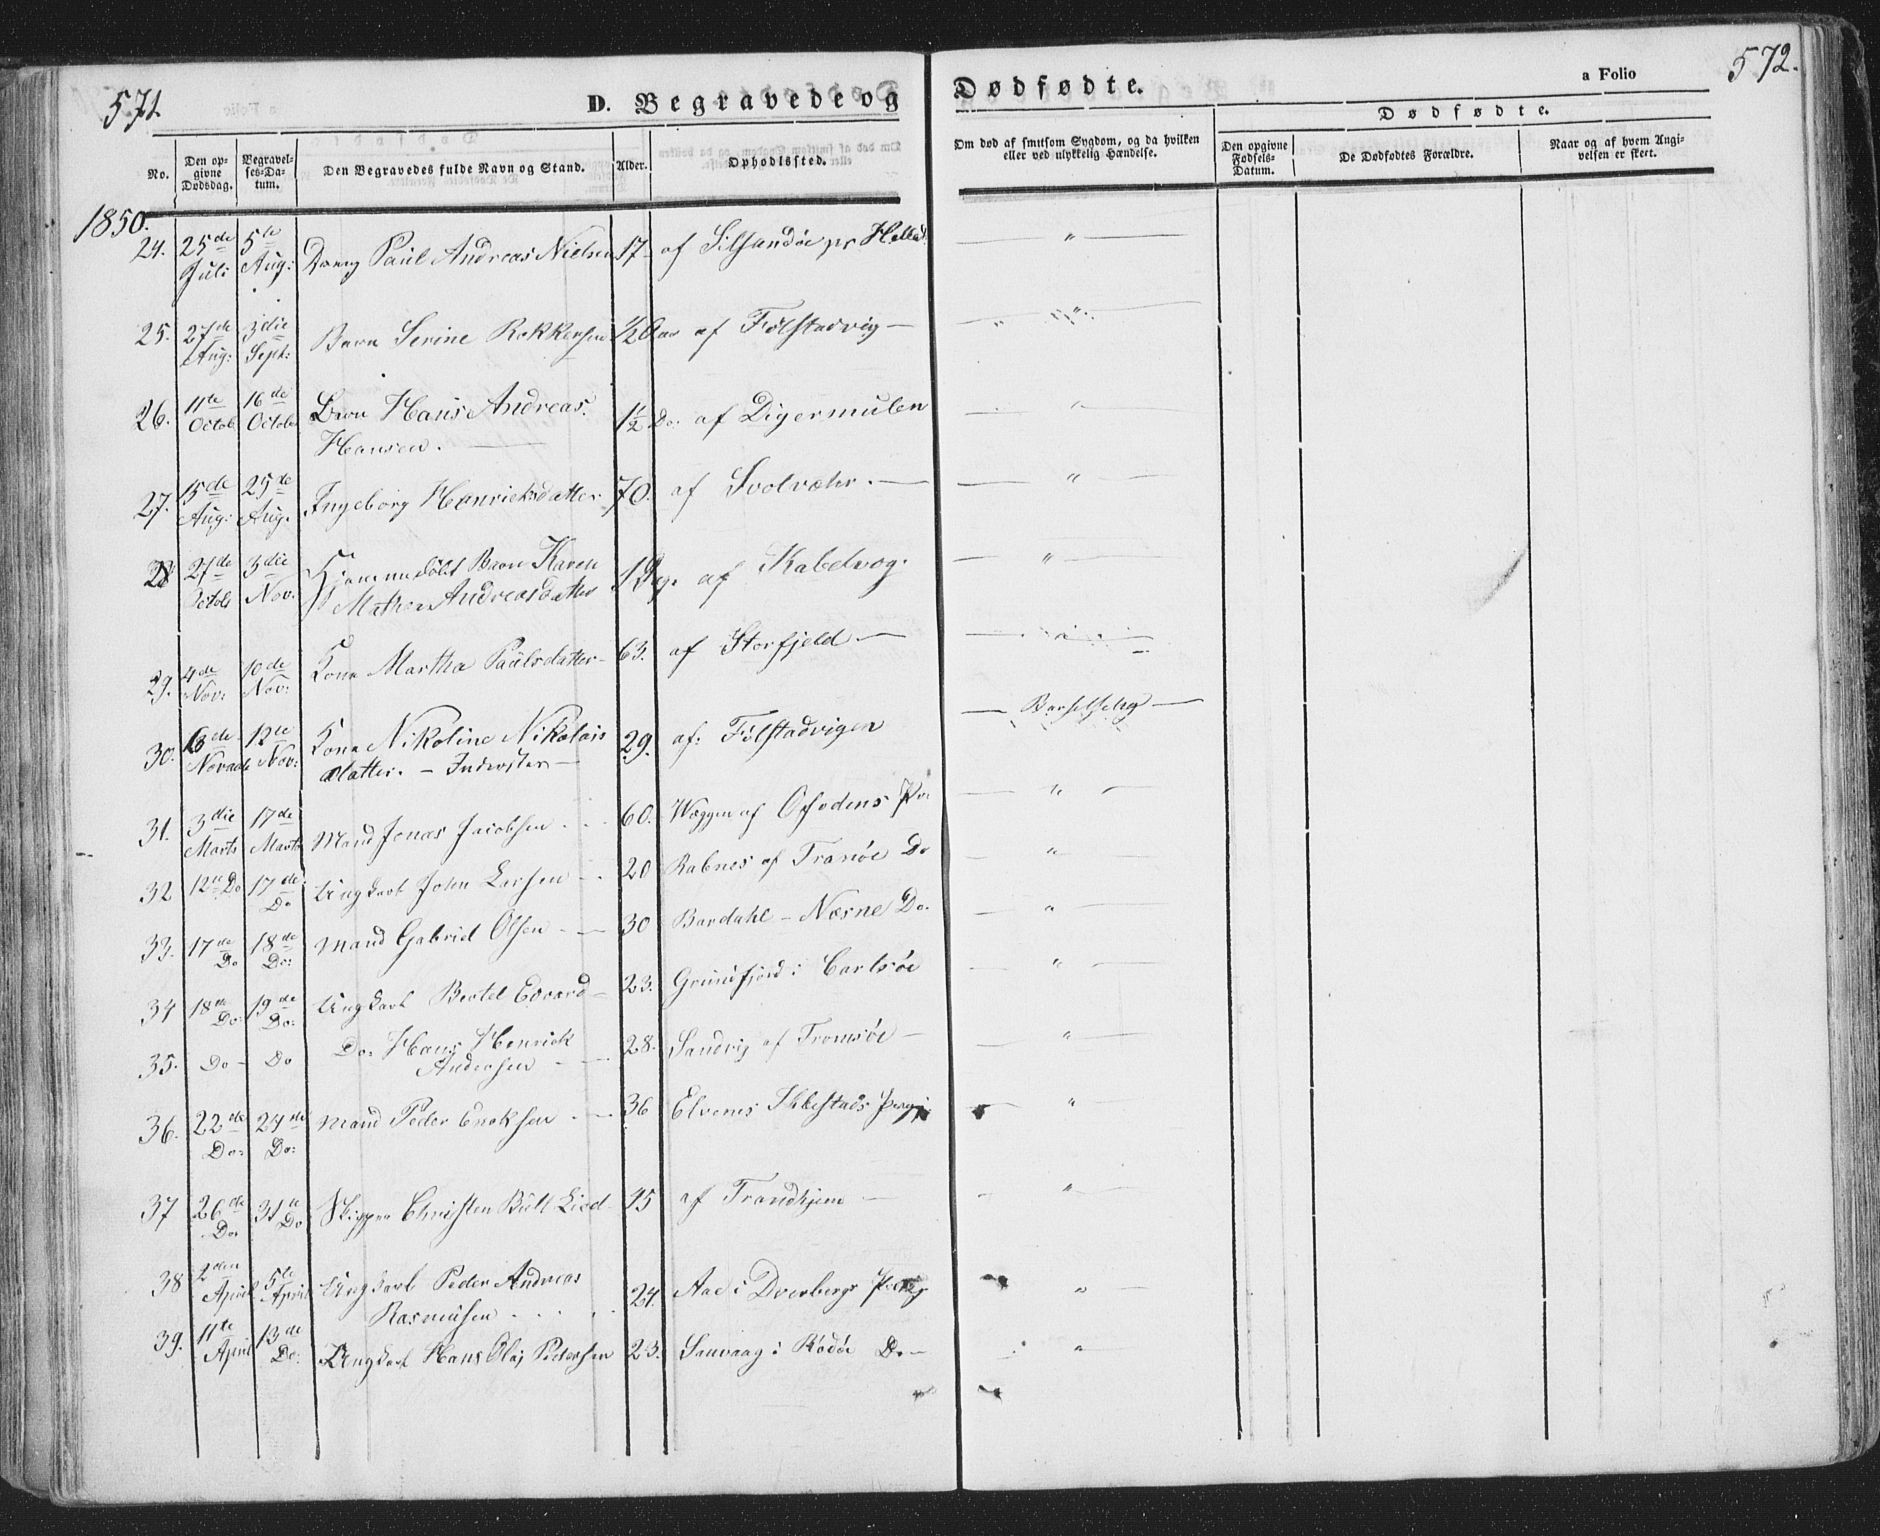 571
572.
D. Begravede og
Dødfødte.
a Folio
No.
Den opgivne Dødsdag.
Begravelses-Datum.
Den Begravedes fulde Navn og Stand.
Alder.
Opholdssted.
Om død af smitsom Sygdom, og da hvilken eller ved ulykkelig Hændelse.
Dødfødte.
Den opgivne Fødsels-Datum.
De Dødfødtes Forældre.
Naar og af hvem Angivelsen er skeet.
1850.
24. 25de Juli 5te Aug: Dreng Paul Andreas Nielsen 17 af Silsandøe "
25. 27de Aug: 3die Sept: Barn Serine ½ Aar af Følstadvig "
26. 11te Octob 16de Octob Barn Hans Andreas Hansen. 1½ Do: af Digermulen "
27. 15de Aug: 25de Aug. Ingeborg Henriksdatter 70. af Svolvæhr. "
28 27de Octob 3die Nov. Hjemmedøbt Barn Karen Andreasdatter 1 Dag. af Kabelvog. "
29. 4de Nov: 10de Nov: Kone Martha Paulsdatter 63. af Storfjeld "
30. Novem 12te Nov: Kone Nikoline Nikolais datter. – Inderster 29. af: Følstadvigen Barselseng
31. 3die Marts 17de Marts Mand Jonas Jacobsen 60. af Ofodens Pr "
32 12te Do 17de Do Ungkarl John Larsen 20 Rabnes af Tranøe Do "
33. 17de Do 18de Do: Mand Gabriel Olsen 30 Bardahl – Næsne Do. "
34 18de Do: 19de Do: Ungkarl Bertel Edvard 23. Grundfjord i Carlsøe "
35. Do Do Do: Hans Henrick Andersen 28. Sandvig af Tromsøe "
36. 22de Do: 24de Do: Mand Peder Enoksen 36 Elvenes Ibbestads "
37 26de Do: 31te Do Skipper Christen Bull Lied 45 af Trondhjem "
38 2den April 5te April Ungkarl Peder Andreas Rasmusen 24. Aae i Dverbergs "
39. 11te April 13de Do: Ungkarl Hans Olaj Pedersen 23. Sauvaag i Rødøe Do "